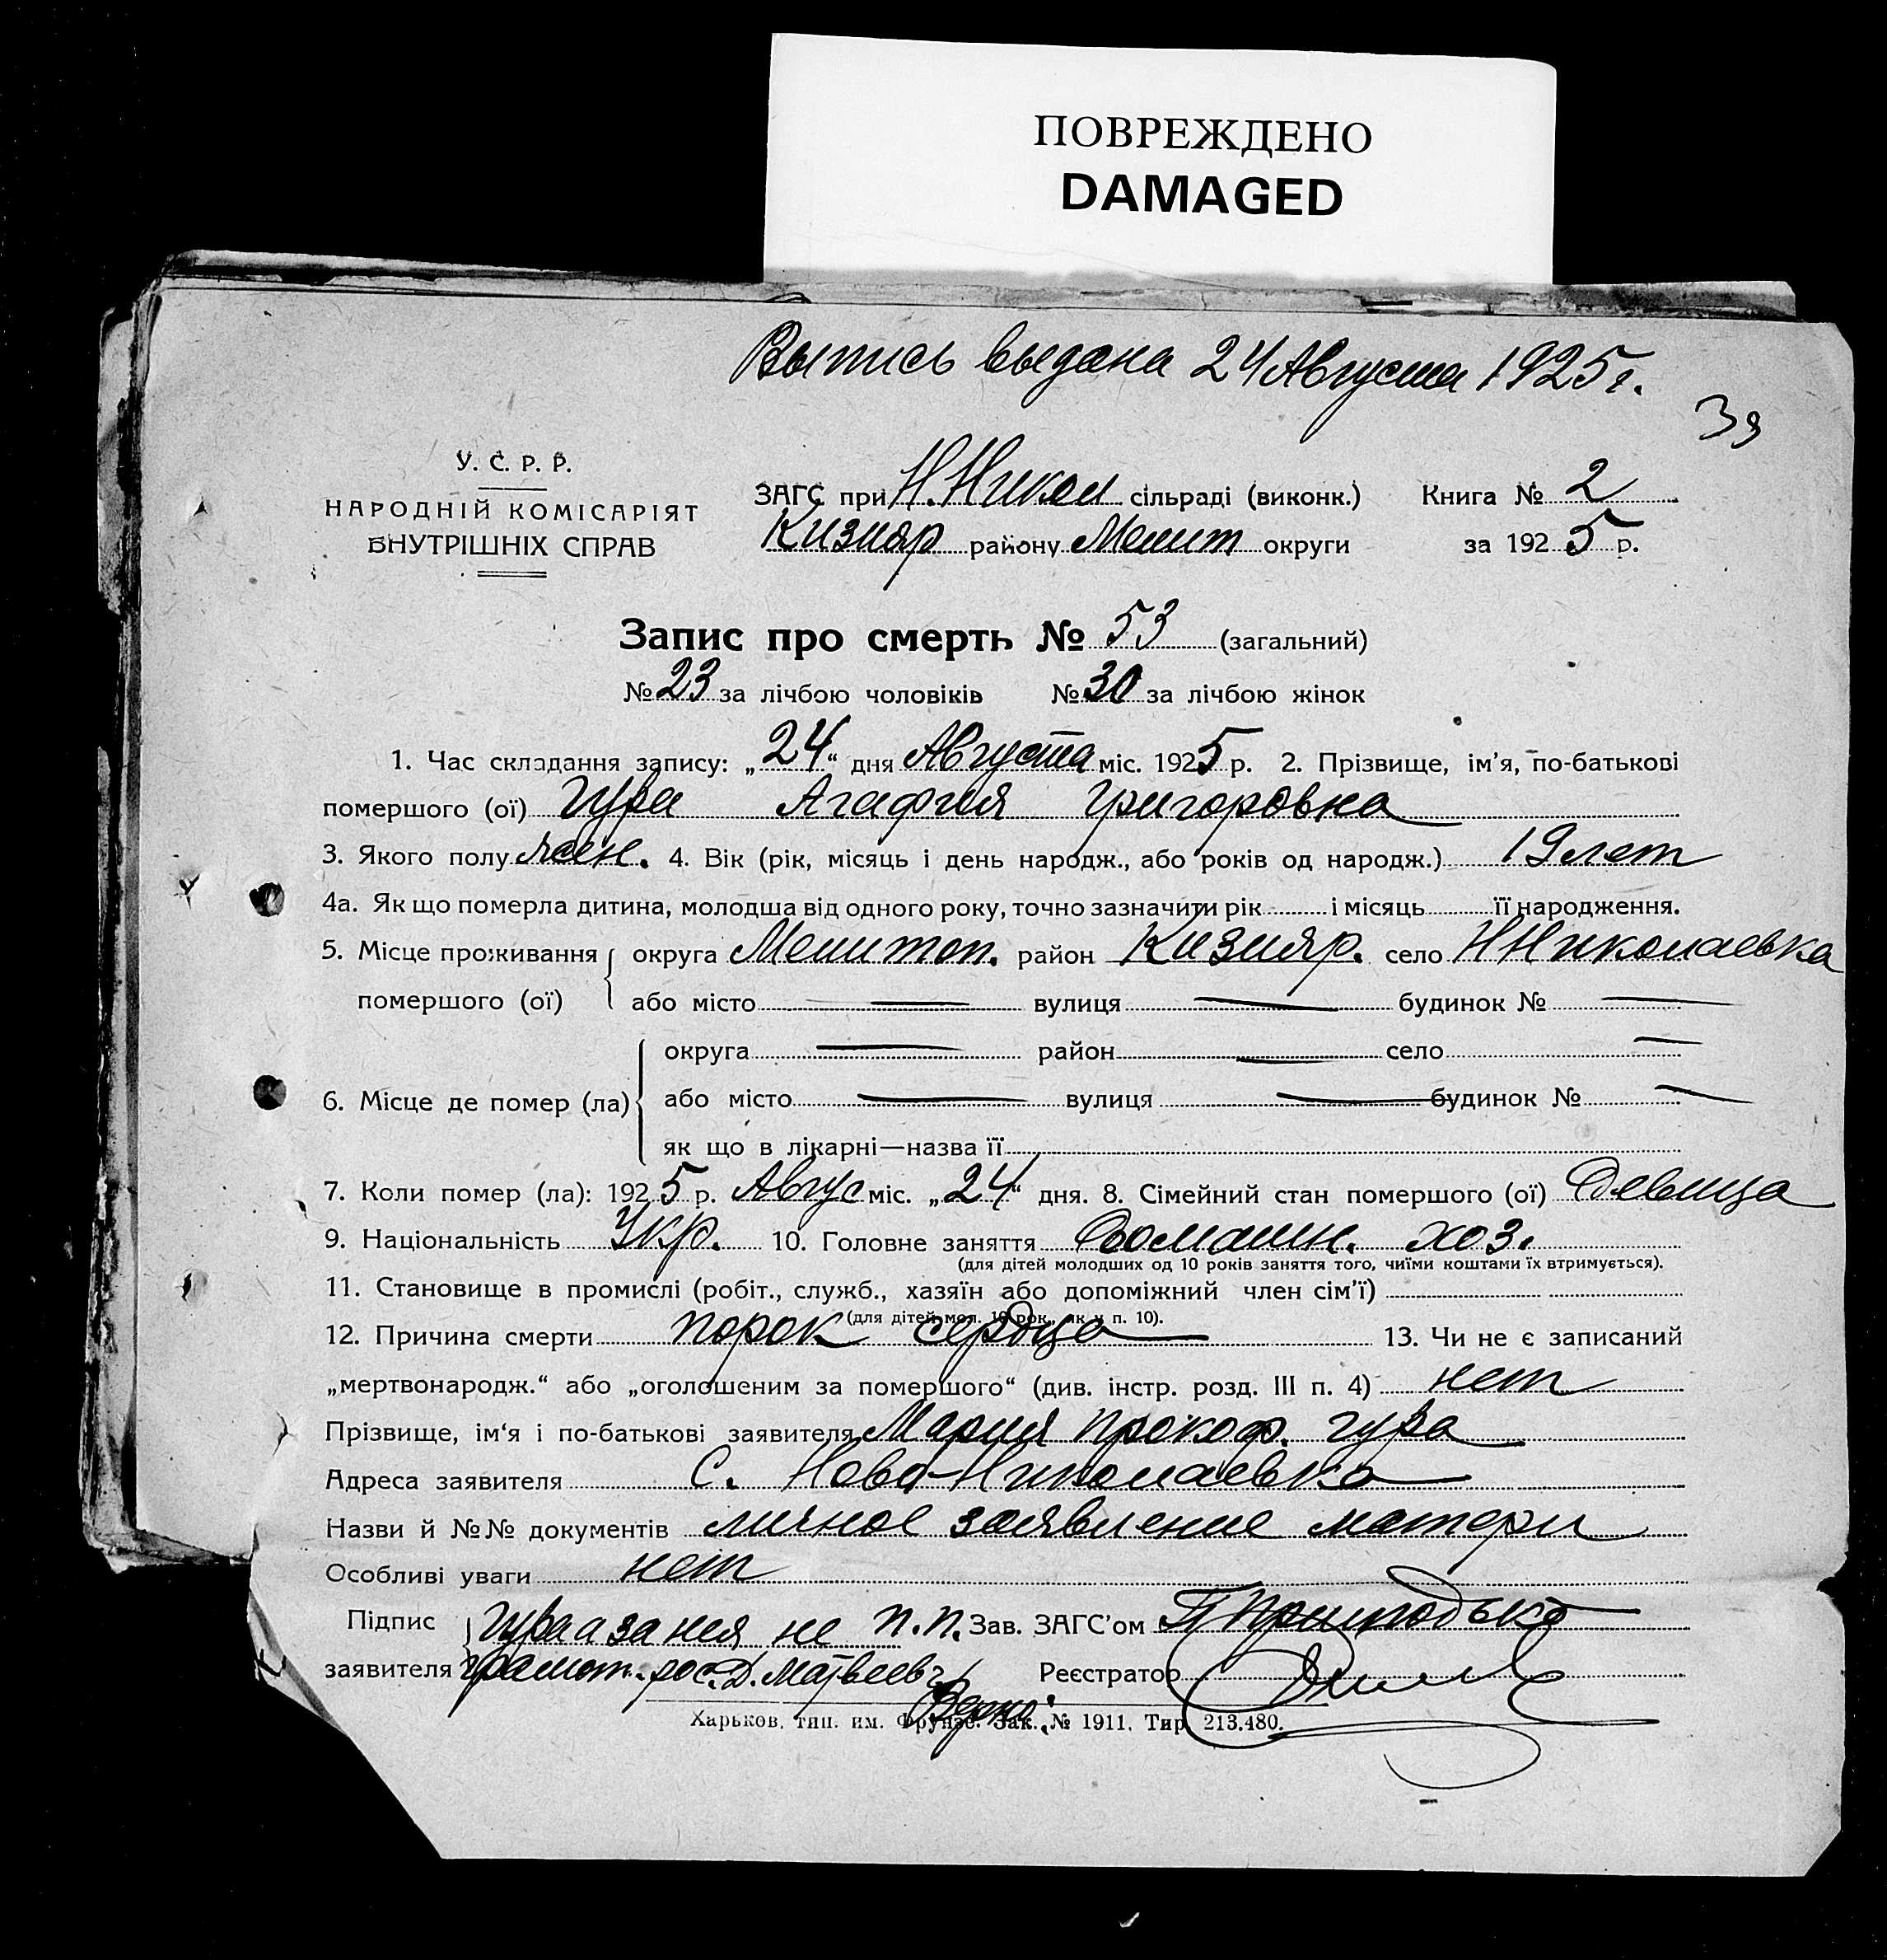 ПОВРЕЖДЕНО
DAMAGED
Выпись выдана 24 Августа 1925 г.
39
У. С. Р. Р.
НАРОДНІЙ КОМІСАРІЯТ
ВНУТРІШНІХ СПРАВ
ЗАГС при Н. Никол сільраді (виконк.) Книга № 2
Кизияр району Мелит округи за 1925 р.
Запис про смерть № 53 (загальний)
№ 23 за лічбою чоловіків № 30 за лічбою жінок
1. Час складання запису: „24“ дня Августа міс. 1925 р. 2. Прізвище, ім'я, по-батькові
помершого (ої) Гура Агафия Григоровка
3. Якого полу жен. 4. Вік (рік, місяць і день народж., або років од народж.) 19 лет
4а. Як що померла дитина, молодша від одного року, точно зазначити рік і місяць її народження.
5. Місце проживання округа Мелитоп. район Кизияр. село Н Николаевка
помершого (ої) або місто — вулиця — будинок № —
округа — район — село —
6. Місце де помер (ла) або місто — вулиця — будинок № —
як що в лікарні—назва її
7. Коли помер (ла): 1925 р. Авгус міс. „24“ дня. 8. Сімейний стан помершого (ої) Девица
9. Національність Укр. 10. Головне заняття Домашн. хоз.
(для дітей молодших од 10 років заняття того, чиїми коштами їх втримується).
11. Становище в промислі (робіт., служб., хазяїн або допоміжний член сім'ї)
(для дітей мол. 10 рок., як у п. 10).
12. Причина смерти порок сердца 13. Чи не є записаний
„мертвонародж.“ або „оголошеним за помершого“ (див. інстр. розд. III п. 4) нет
Прізвище, ім'я і по-батькові заявителя Мария Прокоф. Гура
Адреса заявителя С. Ново-Николаевка
Назви й №№ документів личное заявление матери
Особливі уваги нет
Підпис Гура а за нея не П. П. Зав. ЗАГС'ом П Приходько
заявителя грамот. рос. Д. Матвеев Реєстратор
Верно:
Харьков, тип. им. Фрунзе. Зак. № 1911. Тир. 213.480.